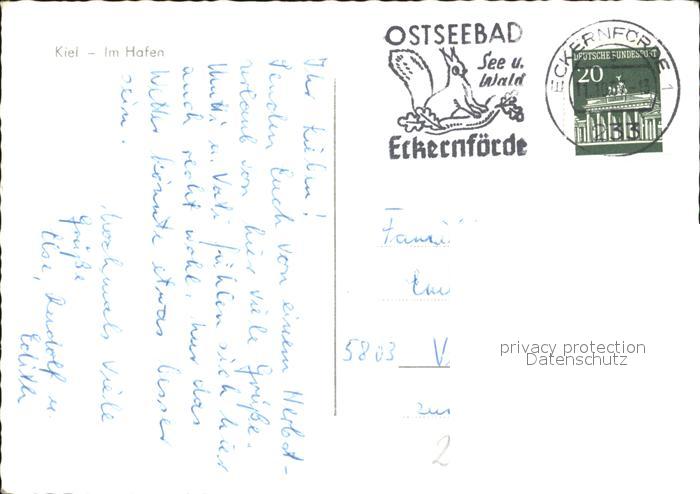 Kiel – Im Hafen
OSTSEEBAD
See u.
Wald
Eckernförde
ECKERNFÖRDE 1
233
DEUTSCHE BUNDESPOST
20
Ihr Lieben!
Senden Euch von einem Herbst-
urlaub von hier viele Grüße.
Mutti u. Vati fühlen sich hier
auch recht wohl, nur das
Wetter könnte etwas besser
sein.
Nochmals viele
Grüße
Ilse, Rudolf u.
Edith
Fami
5803 V
privacy protection
Datenschutz
2